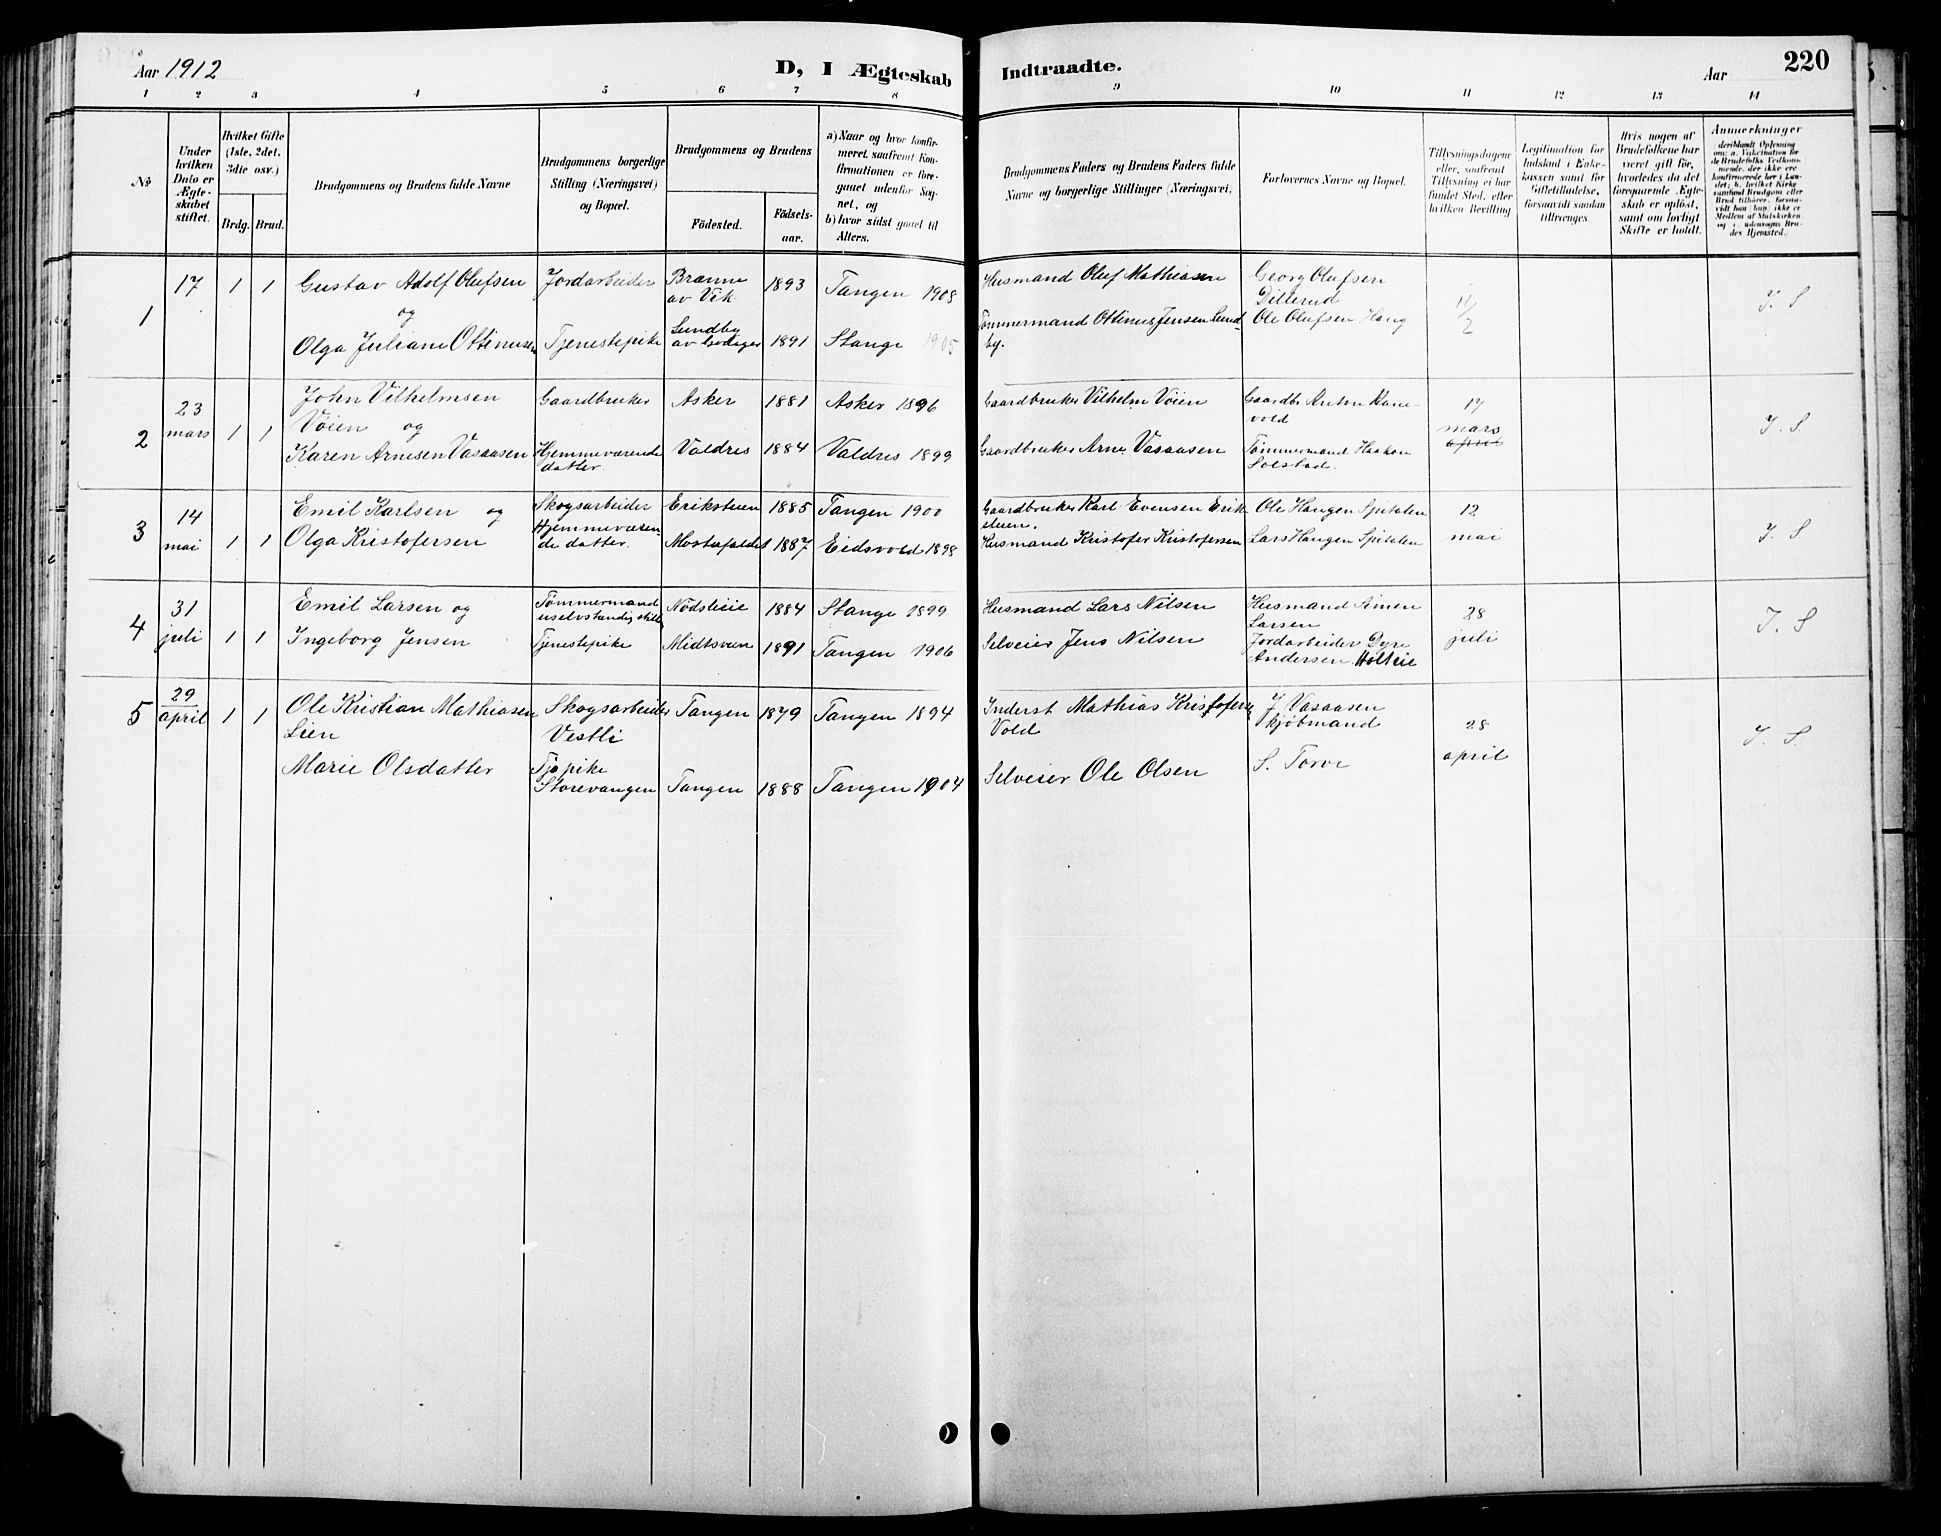 Aar 1912
D, I Ægteskab Indtraadte.
Aar
220
1 2 3 4 5 6 7 8 9 10 11 12 13 14
No
Under hvilken Dato er Ægteskabet stiftet.
Hvilket Gifte (1ste, 2det, 3die osv.)
Brdg. Brud.
Brudgommens og Brudens fulde Navne
Brudgommens borgerlige Stilling (Næringsvei) og Bopæl.
Brudgommens og Brudens
Födested.
Födselsaar.
a) Naar og hvor konfirmeret, saafremt Konfirmationen er foregaaet udenfor Sognet, og
b) hvor sidst gaaet til Alters.
Brudgommens Faders og Brudens Faders fulde Navne og borgerlige Stillinger (Næringsvei).
Forlovernes Navne og Bopæl.
Tillysningsdagene eller, saafremt Tillysning ei har fundet Sted, efter hvilken Bevilling
Legitimation for Indskud i Enkekassen samt for Giftetilladelse, forsaavidt saadan tiltrænges.
Hvis nogen af Brudefolkene har været gift för, hvorledes da det foregaaende Ægteskab er oplöst, samt om lovligt Skifte er holdt.
Anmerkninger deriblandt Oplysning om: a. Vakcination for de Brudefolks Vedkommende, der ikke ere konfirmerede her i Landet; b. hvilket Kirkesamfund Brudgom eller Brud tilhører, forsaavidt han (hun) ikke er Medlem af Statskirken, og c. udensogns Brudes Hjemsted.
1 17 1 1 Gustav Adolf Olufsen Jordarbeider Brænne av Vik 1893 Tangen 1908 Husmand Oluf Mathiasen Georg Olufsen Dillerud 11/2 J. S
og
Olga Juliane Ottinusen Tjenestepike Lundby av 1891 Stange 1905 Tømmermand Ottinus Jensen Lundby. Ole Olufsen Haug
2 23 mars 1 1 John Vilhelmsen Vöien og Gaardbruker Asker 1881 Asker 1896 Gaardbruker Vilhelm Vöien Gaardbr. Anton Ranevold 17 mars april J. S
Karen Arnesen Vasaasen Hjemmeværende datter. Valdres 1884 Valdres 1899 Gaardbruker Arne Vasaasen Tømmermand Haakon Solstad.
3 14 mai 1 1 Emil Karlsen og Skogsarbeider Erikstuen 1885 Tangen 1900 Gaardbruker Karl Evensen Erikstuen. Ole Haugen Spitalen 12 mai J. S
Olga Kristofersen Hjemmeværende datter. 1887 Eidsvold 1898 Husmand Kristofer Kristofersen Lars Haugen Spitalen
4 31 juli 1 1 Emil Larsen og Tømmermand uselvstændig still. Nödsleie 1884 Stange 1899 Husmand Lars Nilsen Husmand Simen Larsen 28 juli J. S
Ingeborg Jensen Tjenestepike Midtsveen 1891 Tangen 1906 Selveier Jens Nilsen Jordarbeider Dyre Andersen Holteie
5 29 april 1 1 Ole Kristian Mathiasen Lien Skogsarbeider Vestli Tangen 1879 Tangen 1894 Inderst Mathias Kristofersen Vold J. Vasaasen kjøbmand 28 april J. S.
Marie Olsdatter Tj.pike Storevangen Tangen 1888 Tangen 1904 Selveier Ole Olsen S. Torve